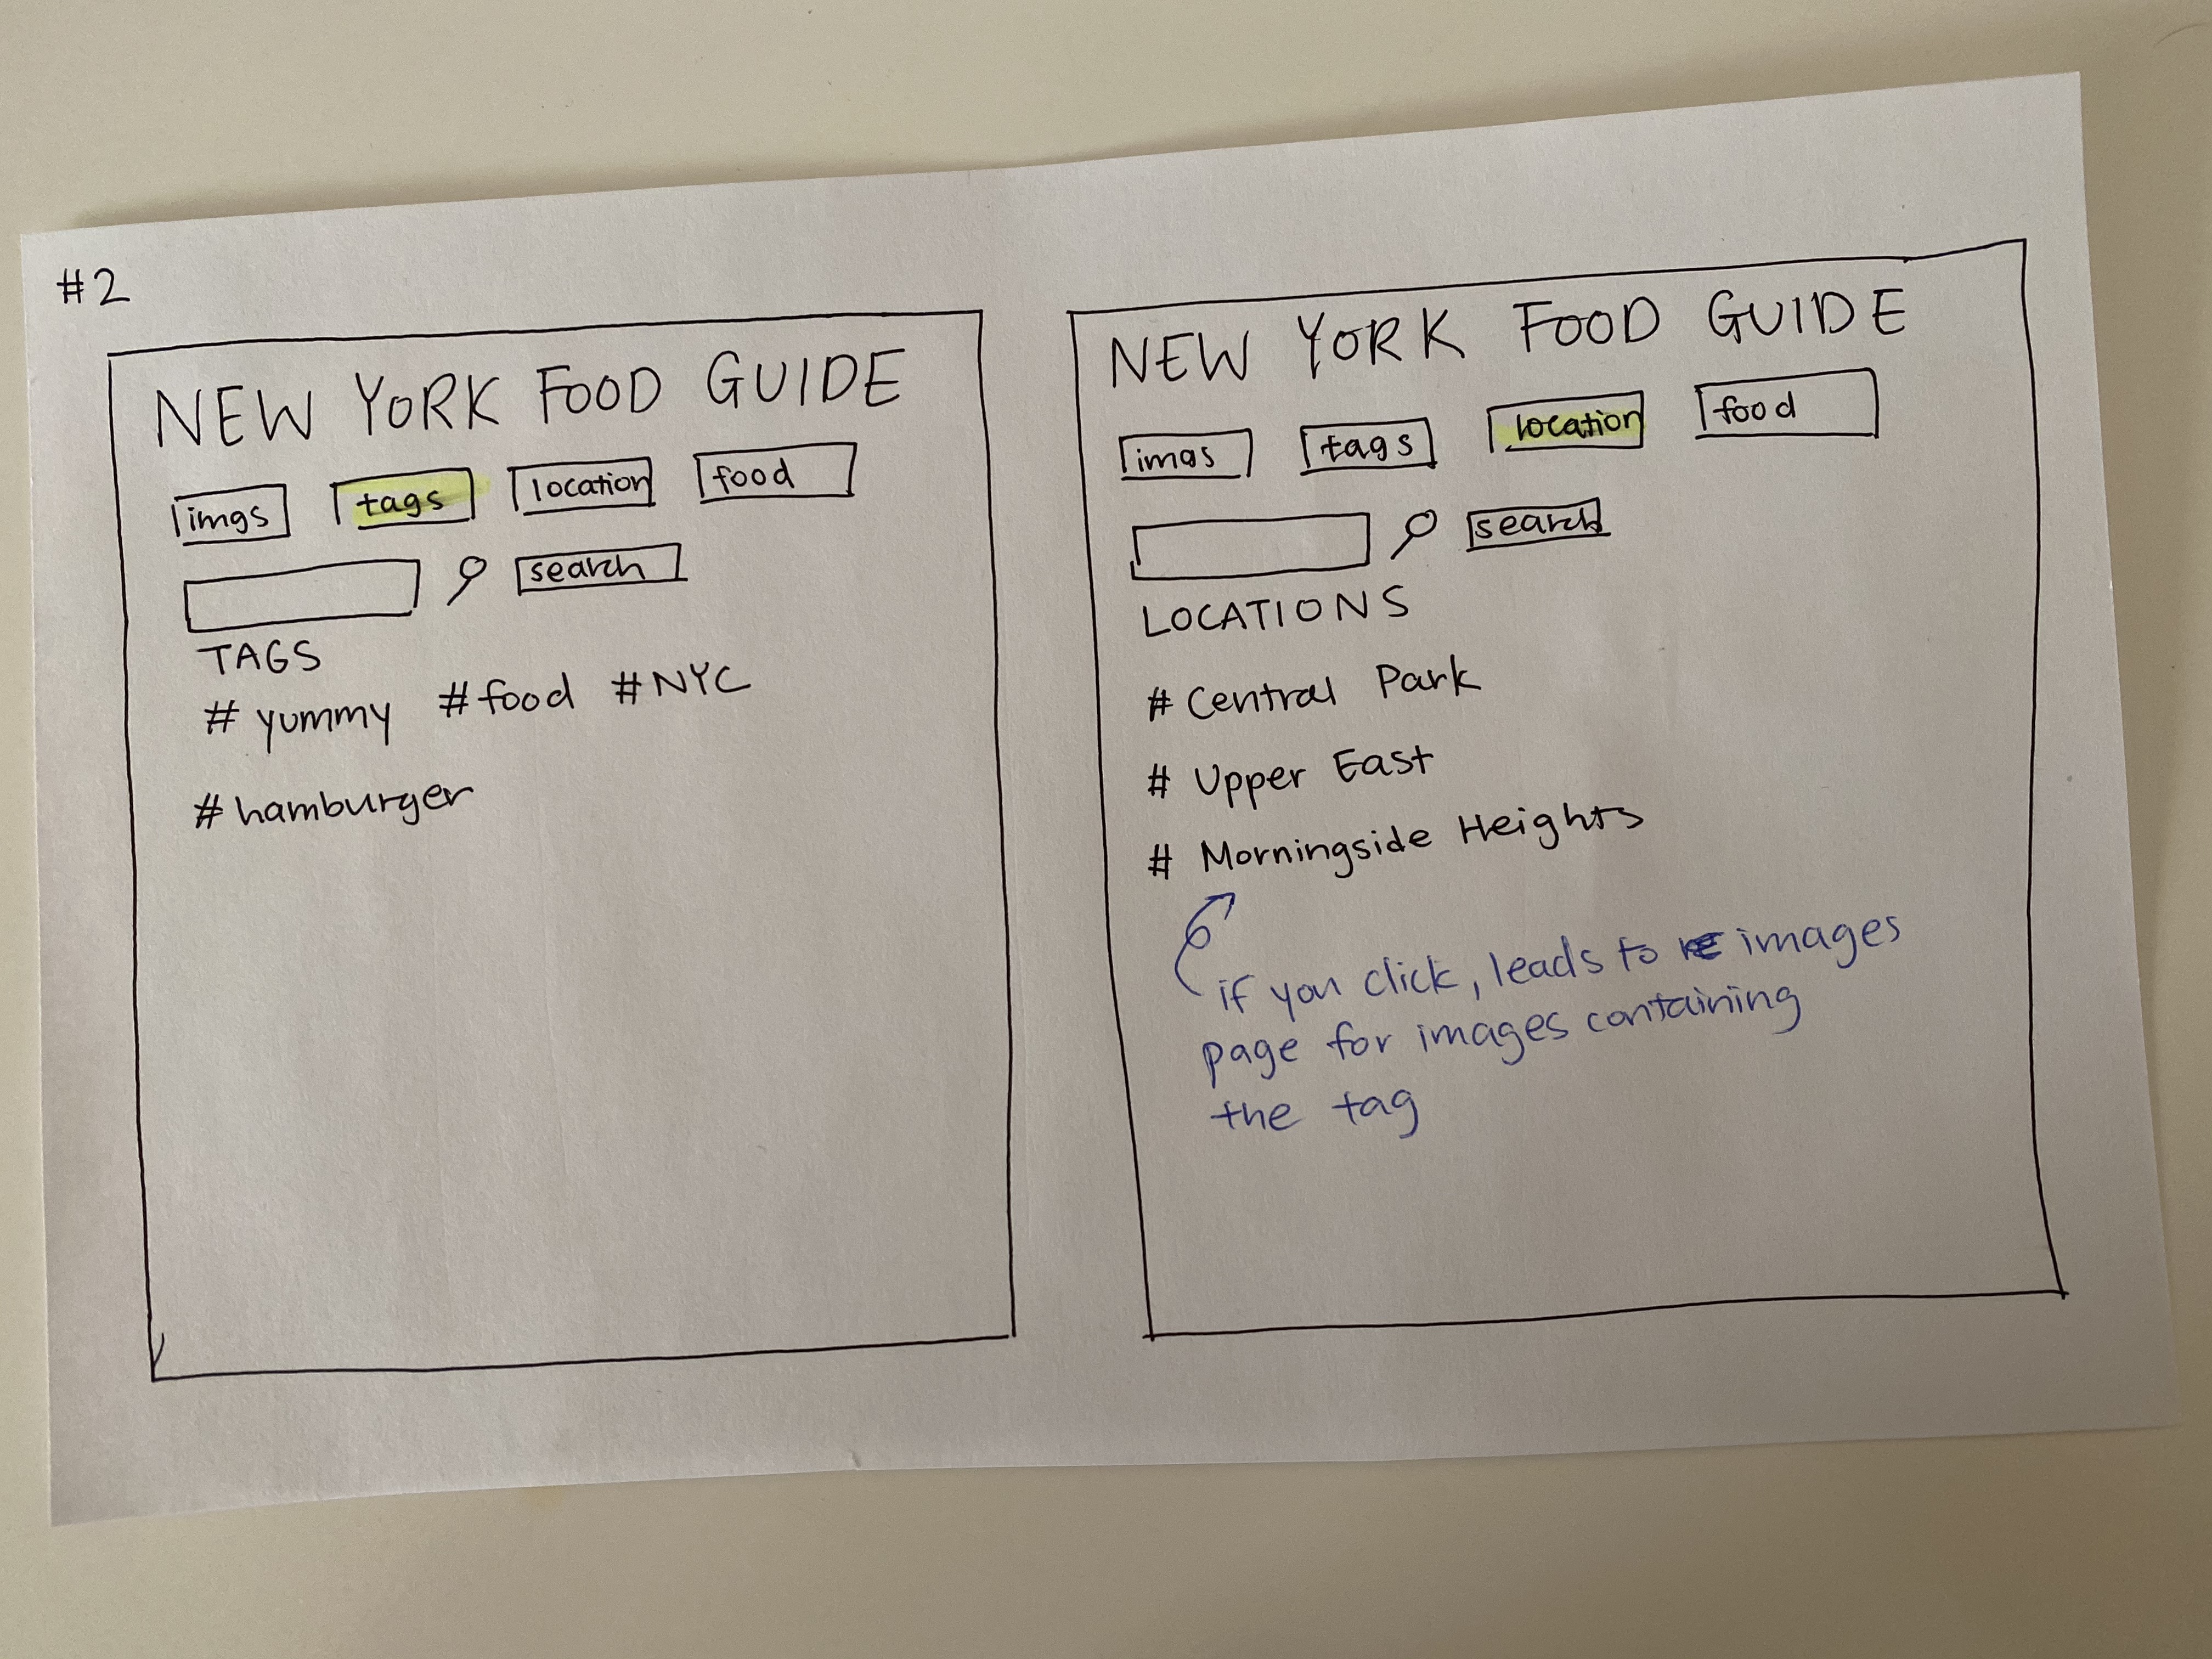 #2
NEW YORK FOOD GUIDE
imgs tags location food
search
TAGS
# yummy #food #NYC
#hamburger
NEW YORK FOOD GUIDE
imgs tags location food
search
LOCATIONS
# Central Park
# Upper East
# Morningside Heights
if you click, leads to images
page for images containing
the tag